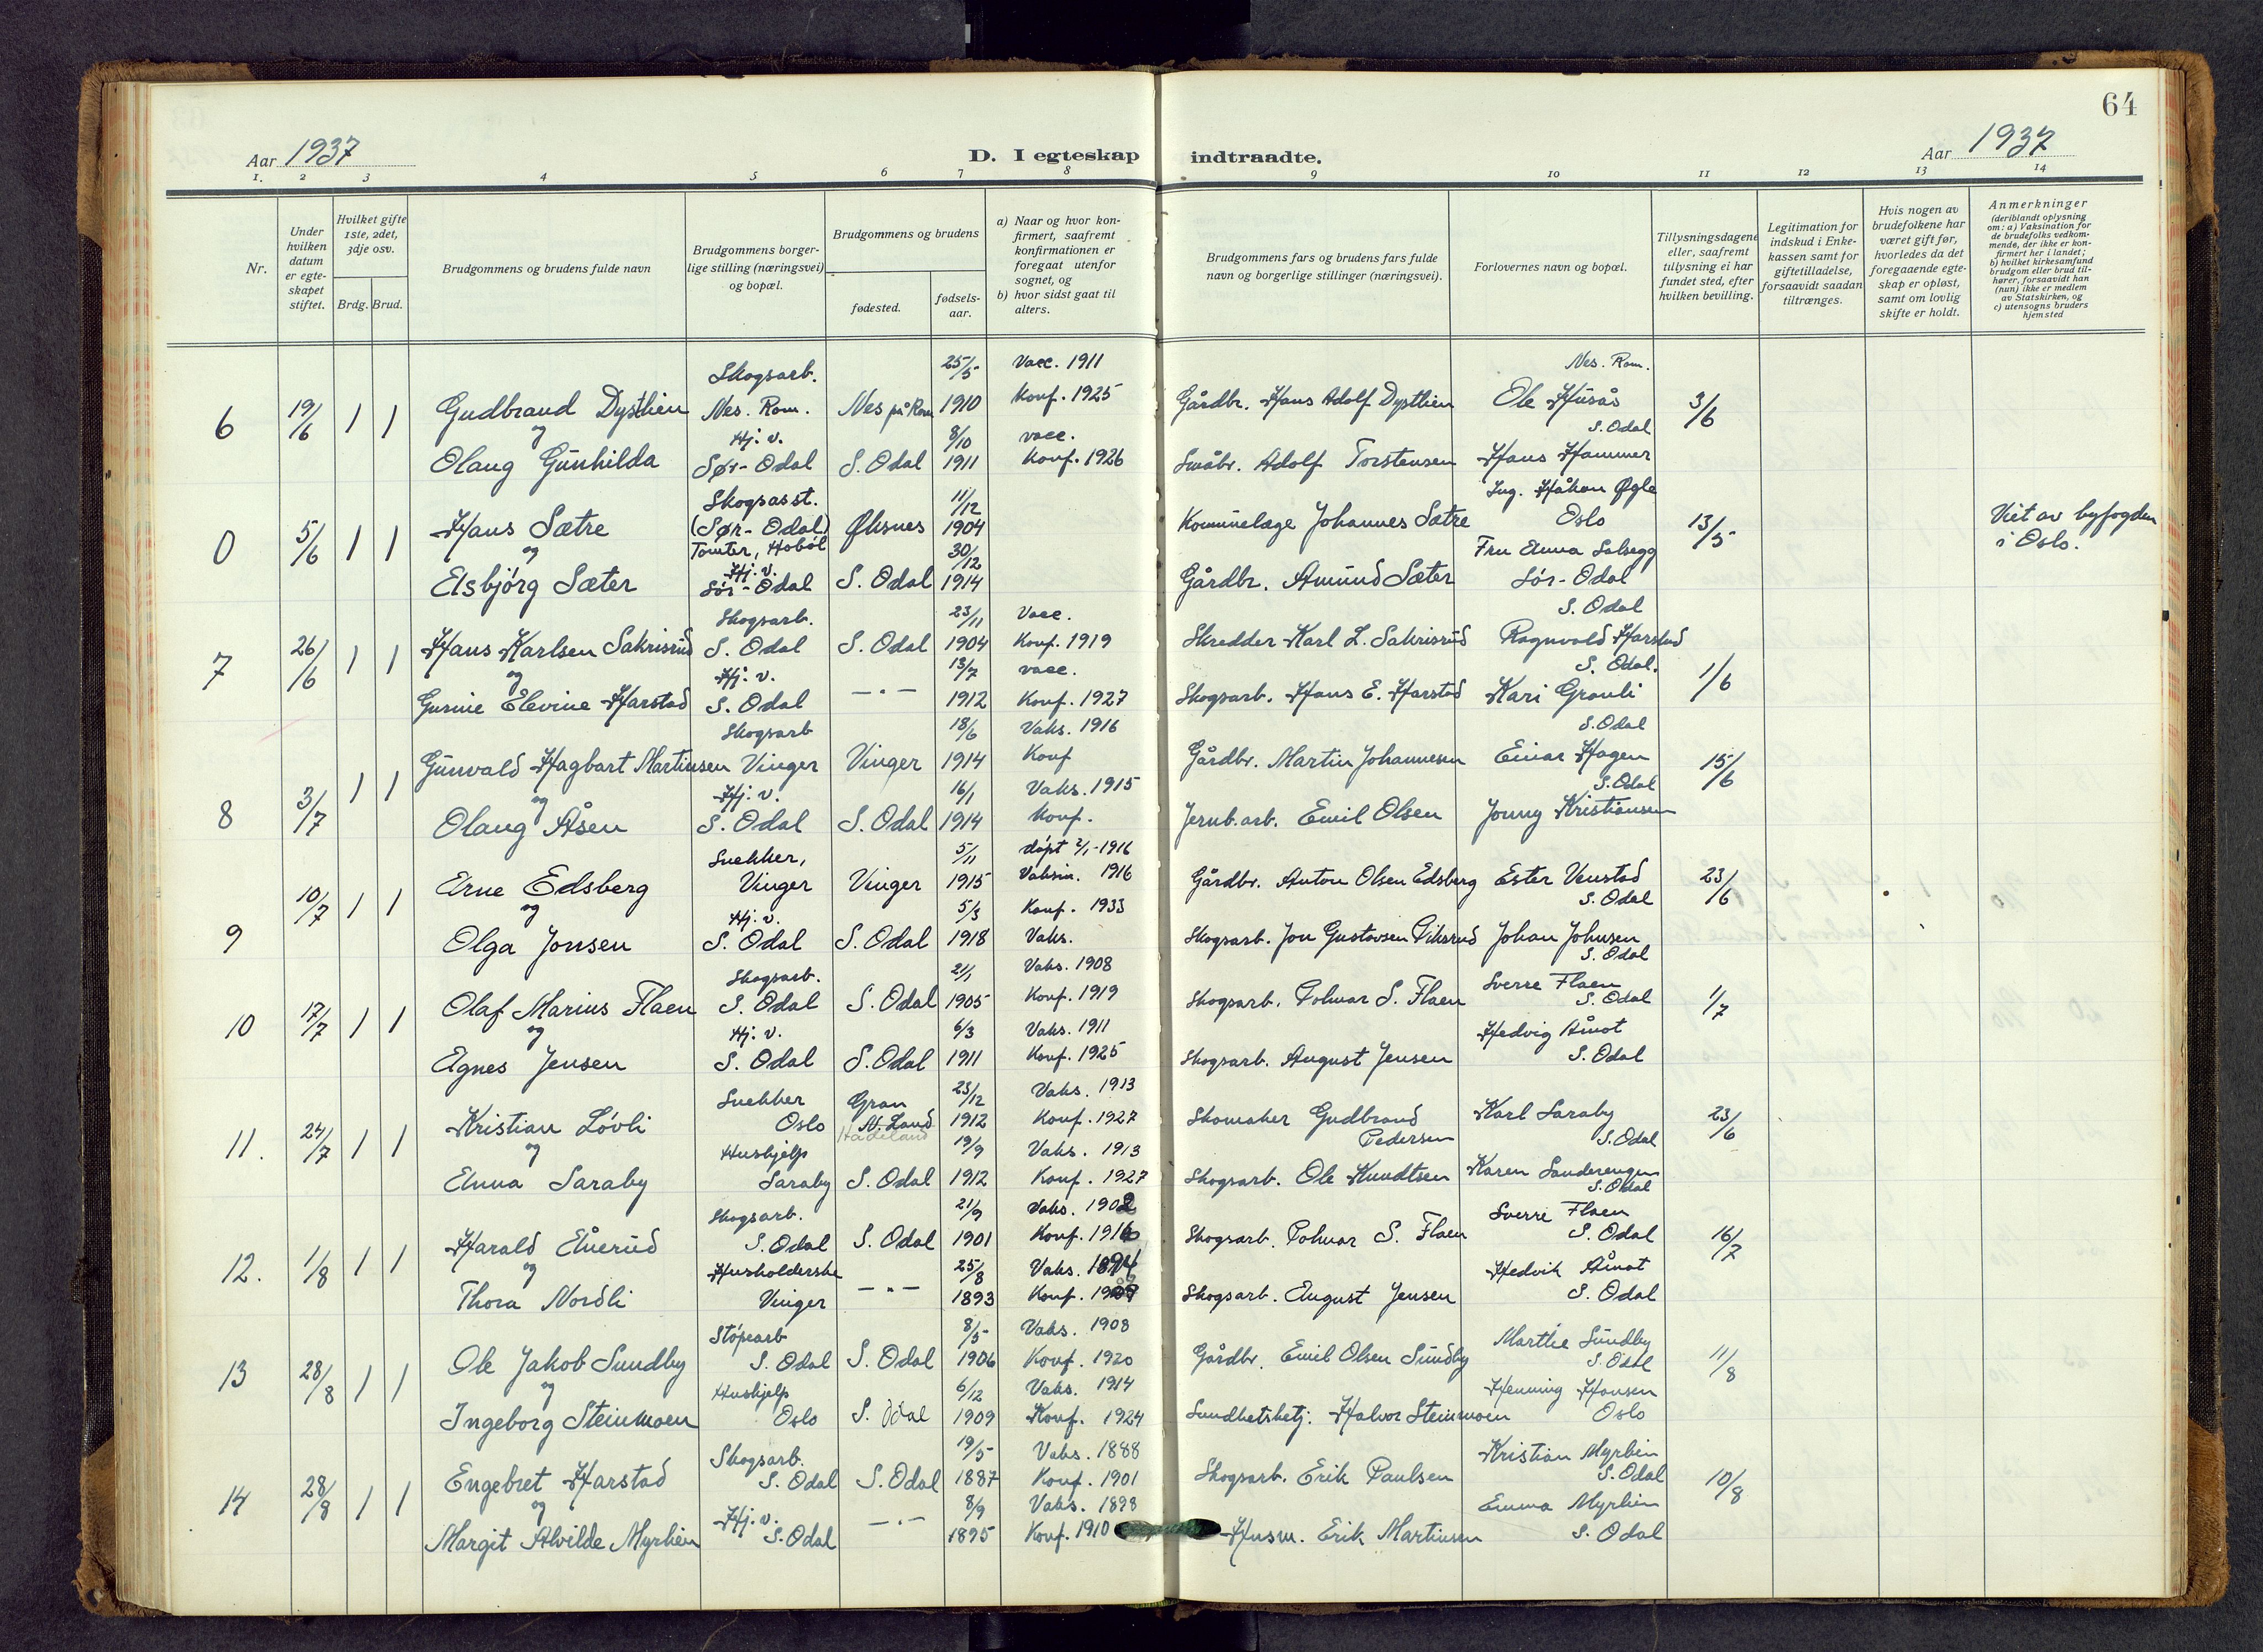 64
Aar 1937
D. I egteskap indtraadte.
Aar 1937
1. 2 3 4 5 6 7 8 9 10 11 12 13 14
Nr.
Under hvilken datum er egteskapet stiftet.
Hvilket gifte 1ste, 2det, 3dje osv.
Brdg. Brud.
Brudgommens og brudens fulde navn
Brudgommens borgerlige stilling (næringsvei) og bopæl.
Brudgommens og brudens
fødested.
fødselsaar.
a) Naar og hvor konfirmert, saafremt konfirmationen er foregaat utenfor sognet, og
b) hvor sidst gaat til alters.
Brudgommens fars og brudens fars fulde navn og borgerlige stillinger (næringsvei).
Forlovernes navn og bopæl.
Tillysningsdagene eller, saafremt tillysning ei har fundet sted, efter hvilken bevilling.
Legitimation for indskud i Enkekassen samt for giftetilladelse, forsaavidt saadan tiltrænges.
Hvis nogen av brudefolkene har været gift før, hvorledes da det foregaaende egteskap er opløst, samt om lovlig skifte er holdt.
Anmerkninger (deriblandt oplysning om: a) Vaksination for de brudefolks vedkommende, der ikke er konfirmert her i landet; b) hvilket kirkesamfund brudgom eller brud tilhører, forsaavidt han (hun) ikke er medlem av Statskirken, og c) utensogns bruders hjemsted
Skogsarb. 25/5 Vacc. 1911 Nes. Rom.
6 19/6 1 1 Gudbrand Dysthien Nes. Rom. Nes på Rom 1910 Konf. 1925 Gårdbr. Hans Adolf Dysthien Ole Husås 3/6
og Hj. v. 8/10 vacc. S. Odal
Olaug Gunhilda Sør-Odal S. Odal 1911 Konf. 1926 Småbr. Adolf Torstensen Hans Hammer
Skogsasst. 11/12 Ing. Håkon Øgle
0 5/6 1 1 Hans Sætre (Sør-Odal) Øksnes 1904 Kommunelæge Johannes Sætre Oslo 13/5 Viet av byfogden i Oslo.
og Tomter, Hobøl 30/12 Fru Anna Solsegg
Hj. v.
Elsbjörg Sæter Sör-Odal S. Odal 1914 Gårdbr. Amund Sæter Sör-Odal
Skogsarb. 23/11 Vacc. S. Odal
7 26/6 1 1 Hans Karlsen Sakrisrud S. Odal S. Odal 1904 Konf. 1919 Skredder Karl L. Sakrisrud Ragnvald Harstad 1/6
og Hj. v. 13/7 vacc. S. Odal.
Gurine Elevine Harstad S. Odal —"— 1912 Konf. 1927 Skogsarb. Hans E. Harstad Kari Granli
Skogsarb 18/6 Vaks. 1916 S. Odal
8 3/7 1 1 Gunvald Hagbart Martinsen Vinger Vinger 1914 Konf Gårdbr. Martin Johannesen Einar Hagen 15/6
og Hj. v. 16/1 Vaks. 1915 S. Odal
Olaug Åsen S. Odal S. Odal 1914 Konf. Jernb. arb. Emil Olsen Jonny Kristiansen
Snekker, 5/11 döpt 2/1-1916
9 10/7 1 1 Arne Edsberg Vinger Vinger 1915 Vaksin. 1916 Gårdbr. Anton Olsen Edsberg Ester Venstad 23/6
og Hj. v. 5/3 Konf. 1933 S. Odal
Olga Jonsen S. Odal S. Odal 1918 Vaks. Skogsarb. Jon Gustavsen Piksrud Johan Johnsen
S. Odal
Skogsarb. 21/1 Vaks. 1908 Sverre Flaen
10 17/7 1 1 Olaf Marius Flaen S. Odal S. Odal 1905 Konf. 1919 Skogsarb. Polmar S. Flaen S. Odal 1/7
og Hj. v. 6/3 Vaks. 1911 Hedvig Åmot
Agnes Jensen S. Odal S. Odal 1911 Konf. 1925 Skogsarb. August Jensen S. Odal
Snekker Gran 23/12 Vaks. 1913 Karl Saraby
11. 24/7 1 1 Kristian Lövli Oslo N. Land 1912 Konf. 1927 Skomaker Gudbrand Pedersen S. Odal 23/6
og Hadeland
Hushjelp 19/9 Vaks. 1913 Karen Sanderengen
Anna Saraby Saraby S. Odal 1912 Konf. 1927 Skogsarb. Ole Knudtsen S. Odal
Skogsarb. 21/9 Vaks. 1902 Sverre Flaen
12. 1/8 1 1 Harald Åmerud S. Odal S. Odal 1901 Konf. 1916 Skogsarb. Polmar S. Flaen S. Odal 16/7
og Husholderske 25/8 Vaks. 1894 Hedvik Åmot
Thora Nordli Vinger —"— 1893 Konf. Skogsarb. August Jensen S. Odal
Stöpearb 8/5 Vaks. 1908 Marthe Sundby
13 28/8 1 1 Ole Jakob Sundby S. Odal S. Odal 1906 Konf. 1920 Gårdbr. Emil Olsen Sundby S. Odal 11/8
og Hushjelp 6/12 Vaks. 1914 Henning Hansen
Ingeborg Steinmoen Oslo S. Odal 1909 Konf. 1924 Sundhetsbetj. Halvor Steinmoen Oslo
Skogsarb. 19/5 Vaks. 1888 Kristian Myrhien
14 28/8 1 1 Engebret Harstad S. Odal S. Odal 1887 Konf. 1901 Skogsarb. Erik Paulsen S. Odal 10/8
og Hj. v. 8/9 Vaks. 1898 Emma Myrhien
Margit Alvilde Myrhien S. Odal —"— 1895 Konf. 1910 Husm. Erik Martinsen S. Odal